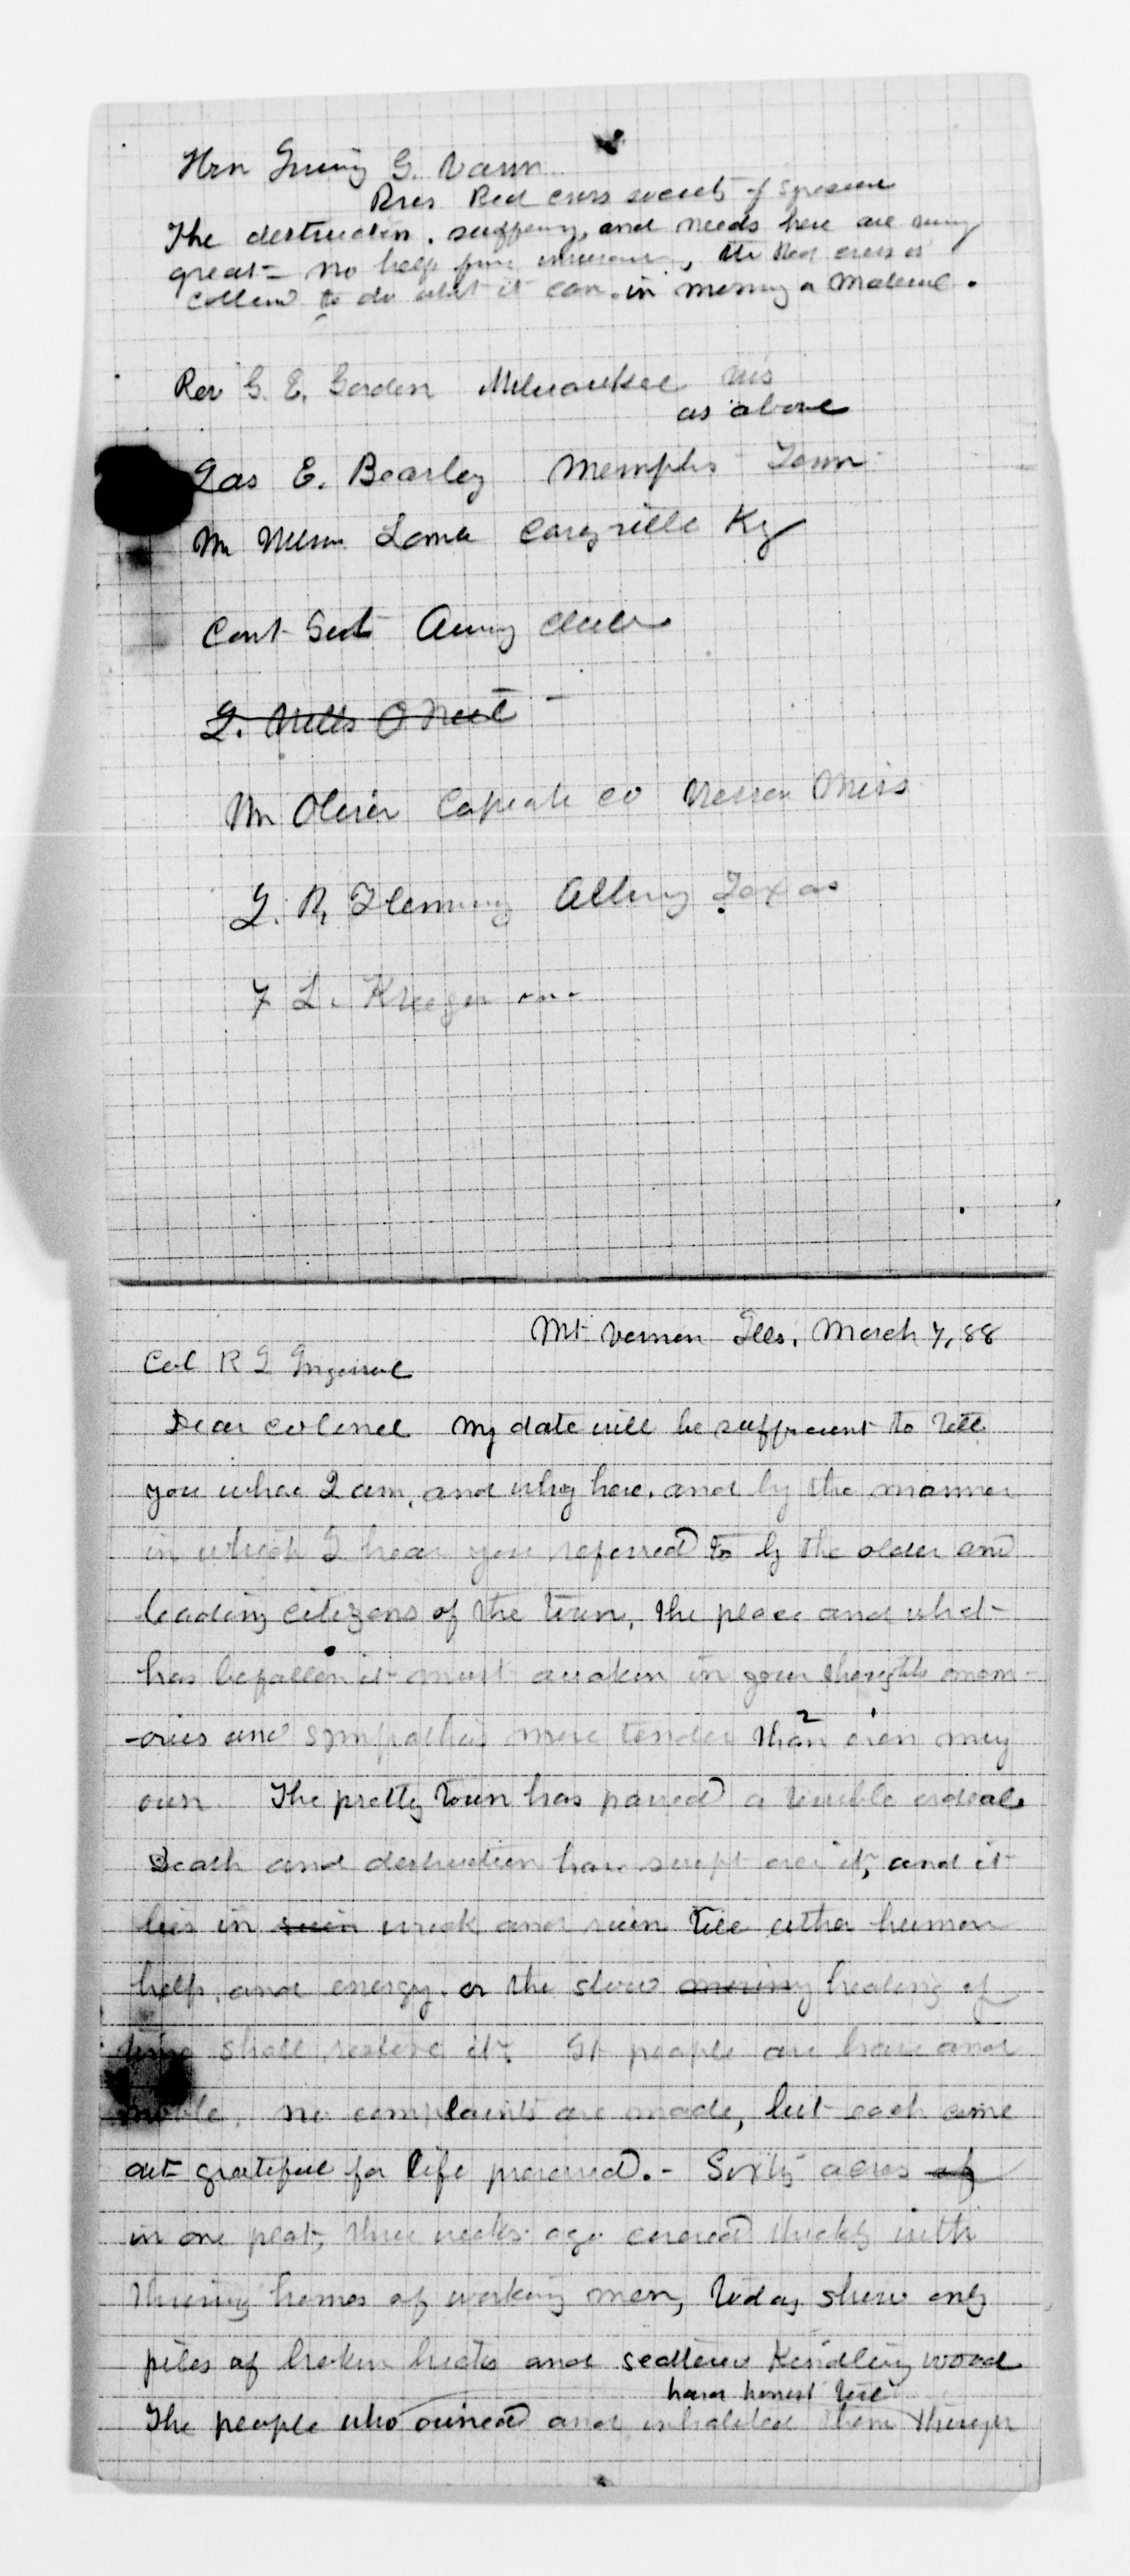 Hon Irving G. Vann
Pres Red cross society of Syracuse
The destruction, suffering, and needs here are very
great - no help from insurance, the Red cross is
called to do what it can in money or material.
Rev G. E. Gordon Milwaukee Wis
as above
Jas E. Bearley Memphis Tenn
Mr Caseyville Ky
Cont Army
J. Wills O Neil -
Mr Oliver Copiah co Wesson Miss
J. R. Fleming Albany Texas
F L. Kruger
Mt Vernon Ills. March 7, 88
Col R I Ingersol
Dear Colonel My date will be sufficient to tell
you where I am, and why here, and by the manner
in which I hear you referred to by the older and
leading citizens of the town, the place and what
has befallen it must awaken in your thoughts mem-
-ories and sympathies more tender than even my
own. The pretty town has passed a terrible ordeal
Death and destruction have swept over it, and it
lies in ruin wreck and ruin till either human
help, and energy, or the slow healing of
time shall restore it. Its people are brave and
noble, no complaints are made, but each come
out grateful for life preserved. - Sixty acres of
in one plat, three weeks ago covered thickly with
thriving homes of working men, today show only
piles of broken bricks and scattered Kindling wood
hard honest toil
The people who owned and inhabited them through